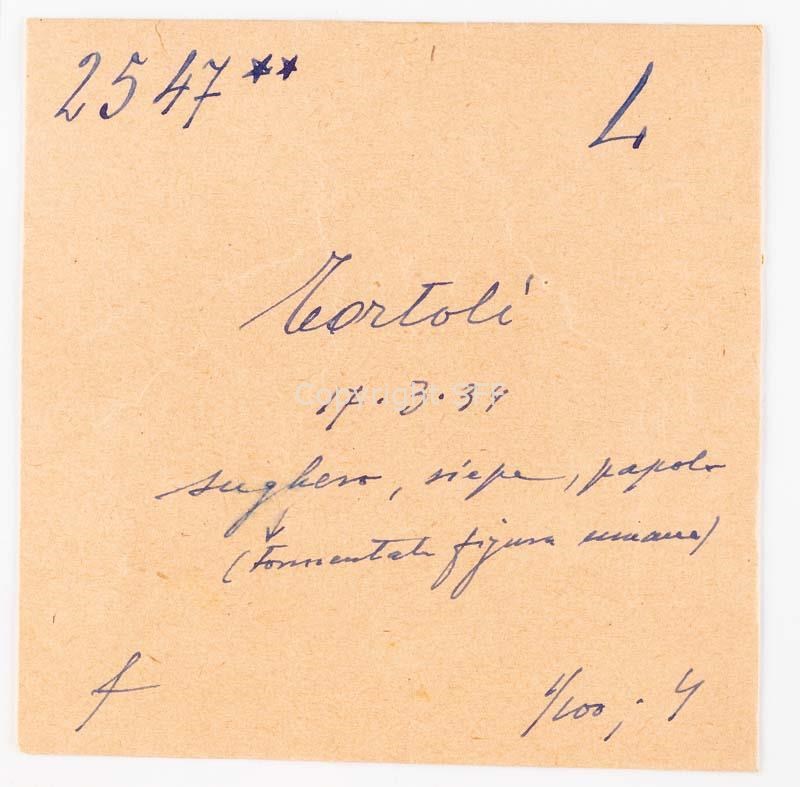 2547** L
Tortolí
17.3.34
sughero, siepe,
(tormentata figura umana)
f
1/100; 4